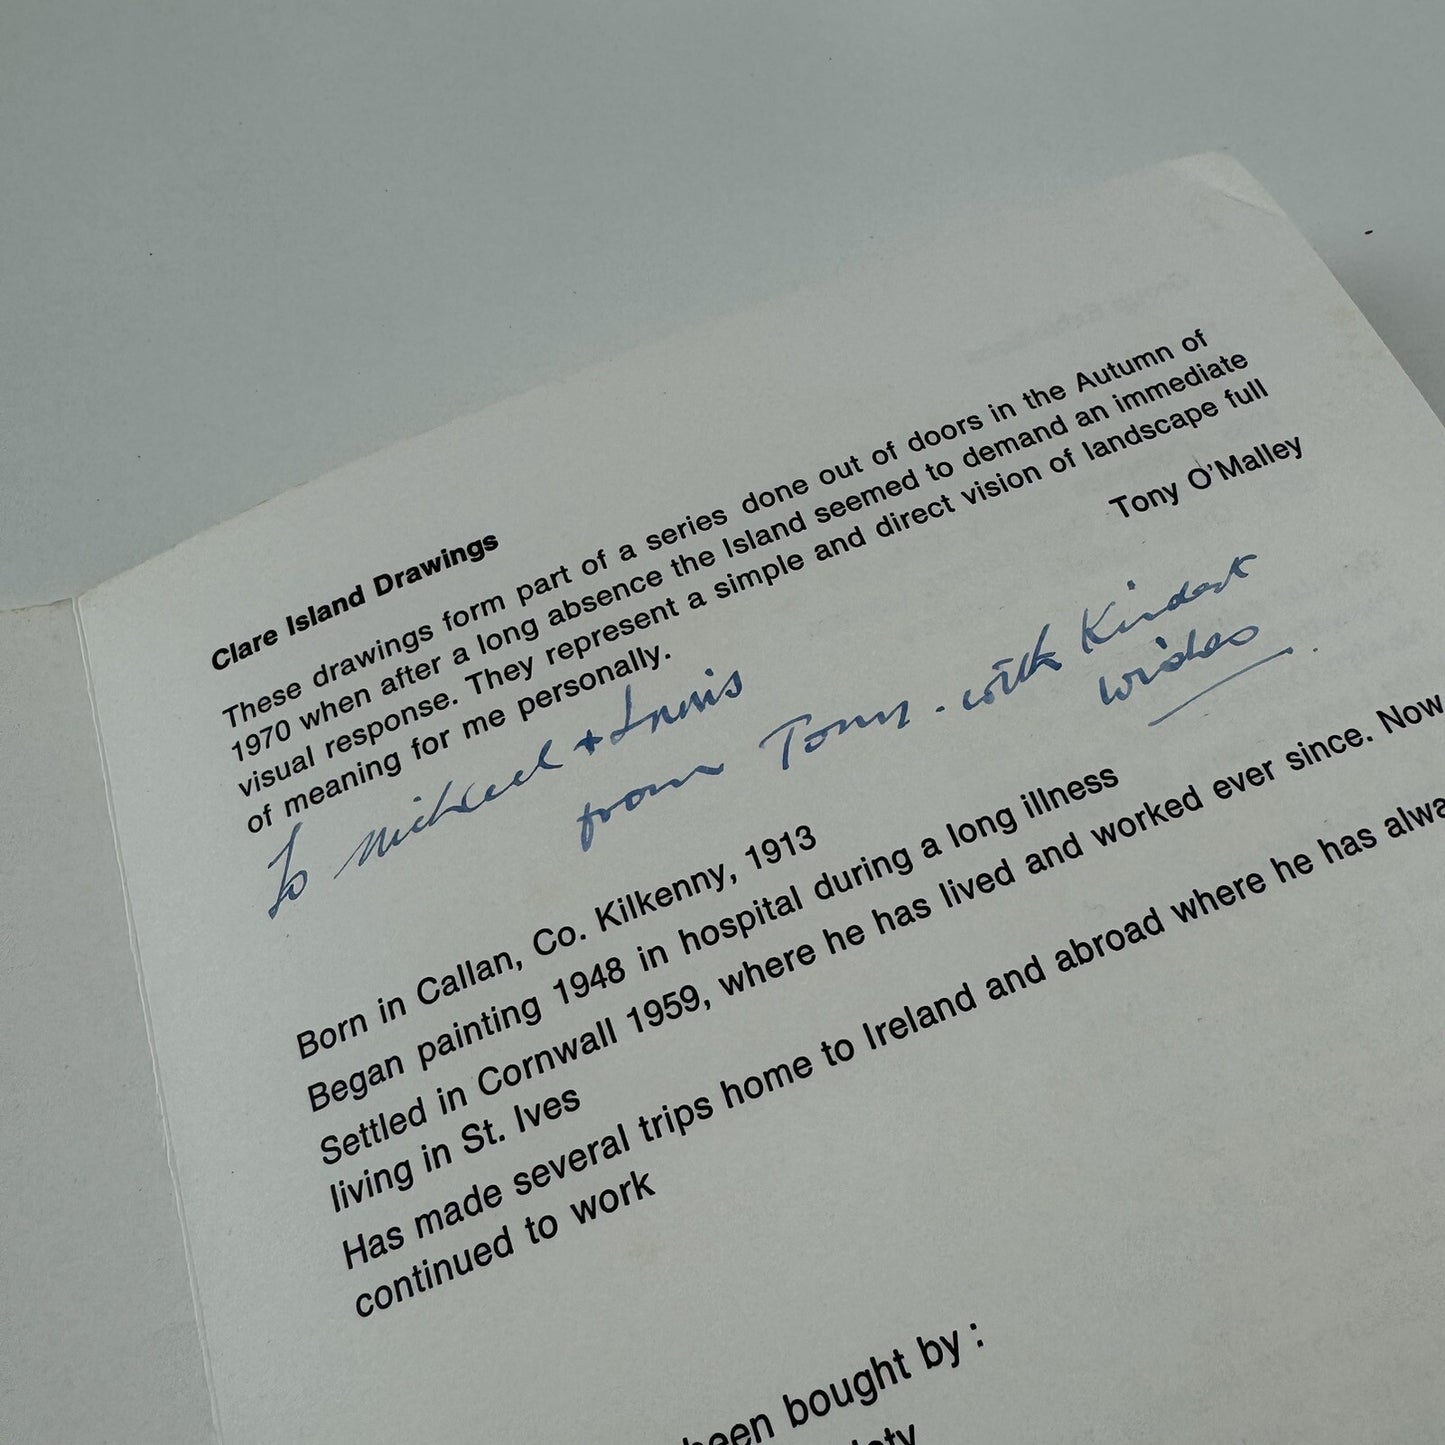 Clare Island Drawings
These drawings form part of a series done out of doors in the Autumn of
1970 when after a long absence the Island seemed to demand an immediate
visual response. They represent a simple and direct vision of landscape full
of meaning for me personally.
Tony O'Malley
To Michael +
from Tony. with Kindest
wishes
Born in Callan, Co. Kilkenny, 1913
Began painting 1948 in hospital during a long illness
Settled in Cornwall 1959, where he has lived and worked ever since. Now
living in St. Ives
Has made several trips home to Ireland and abroad where he has alwa
continued to work
been bought by :